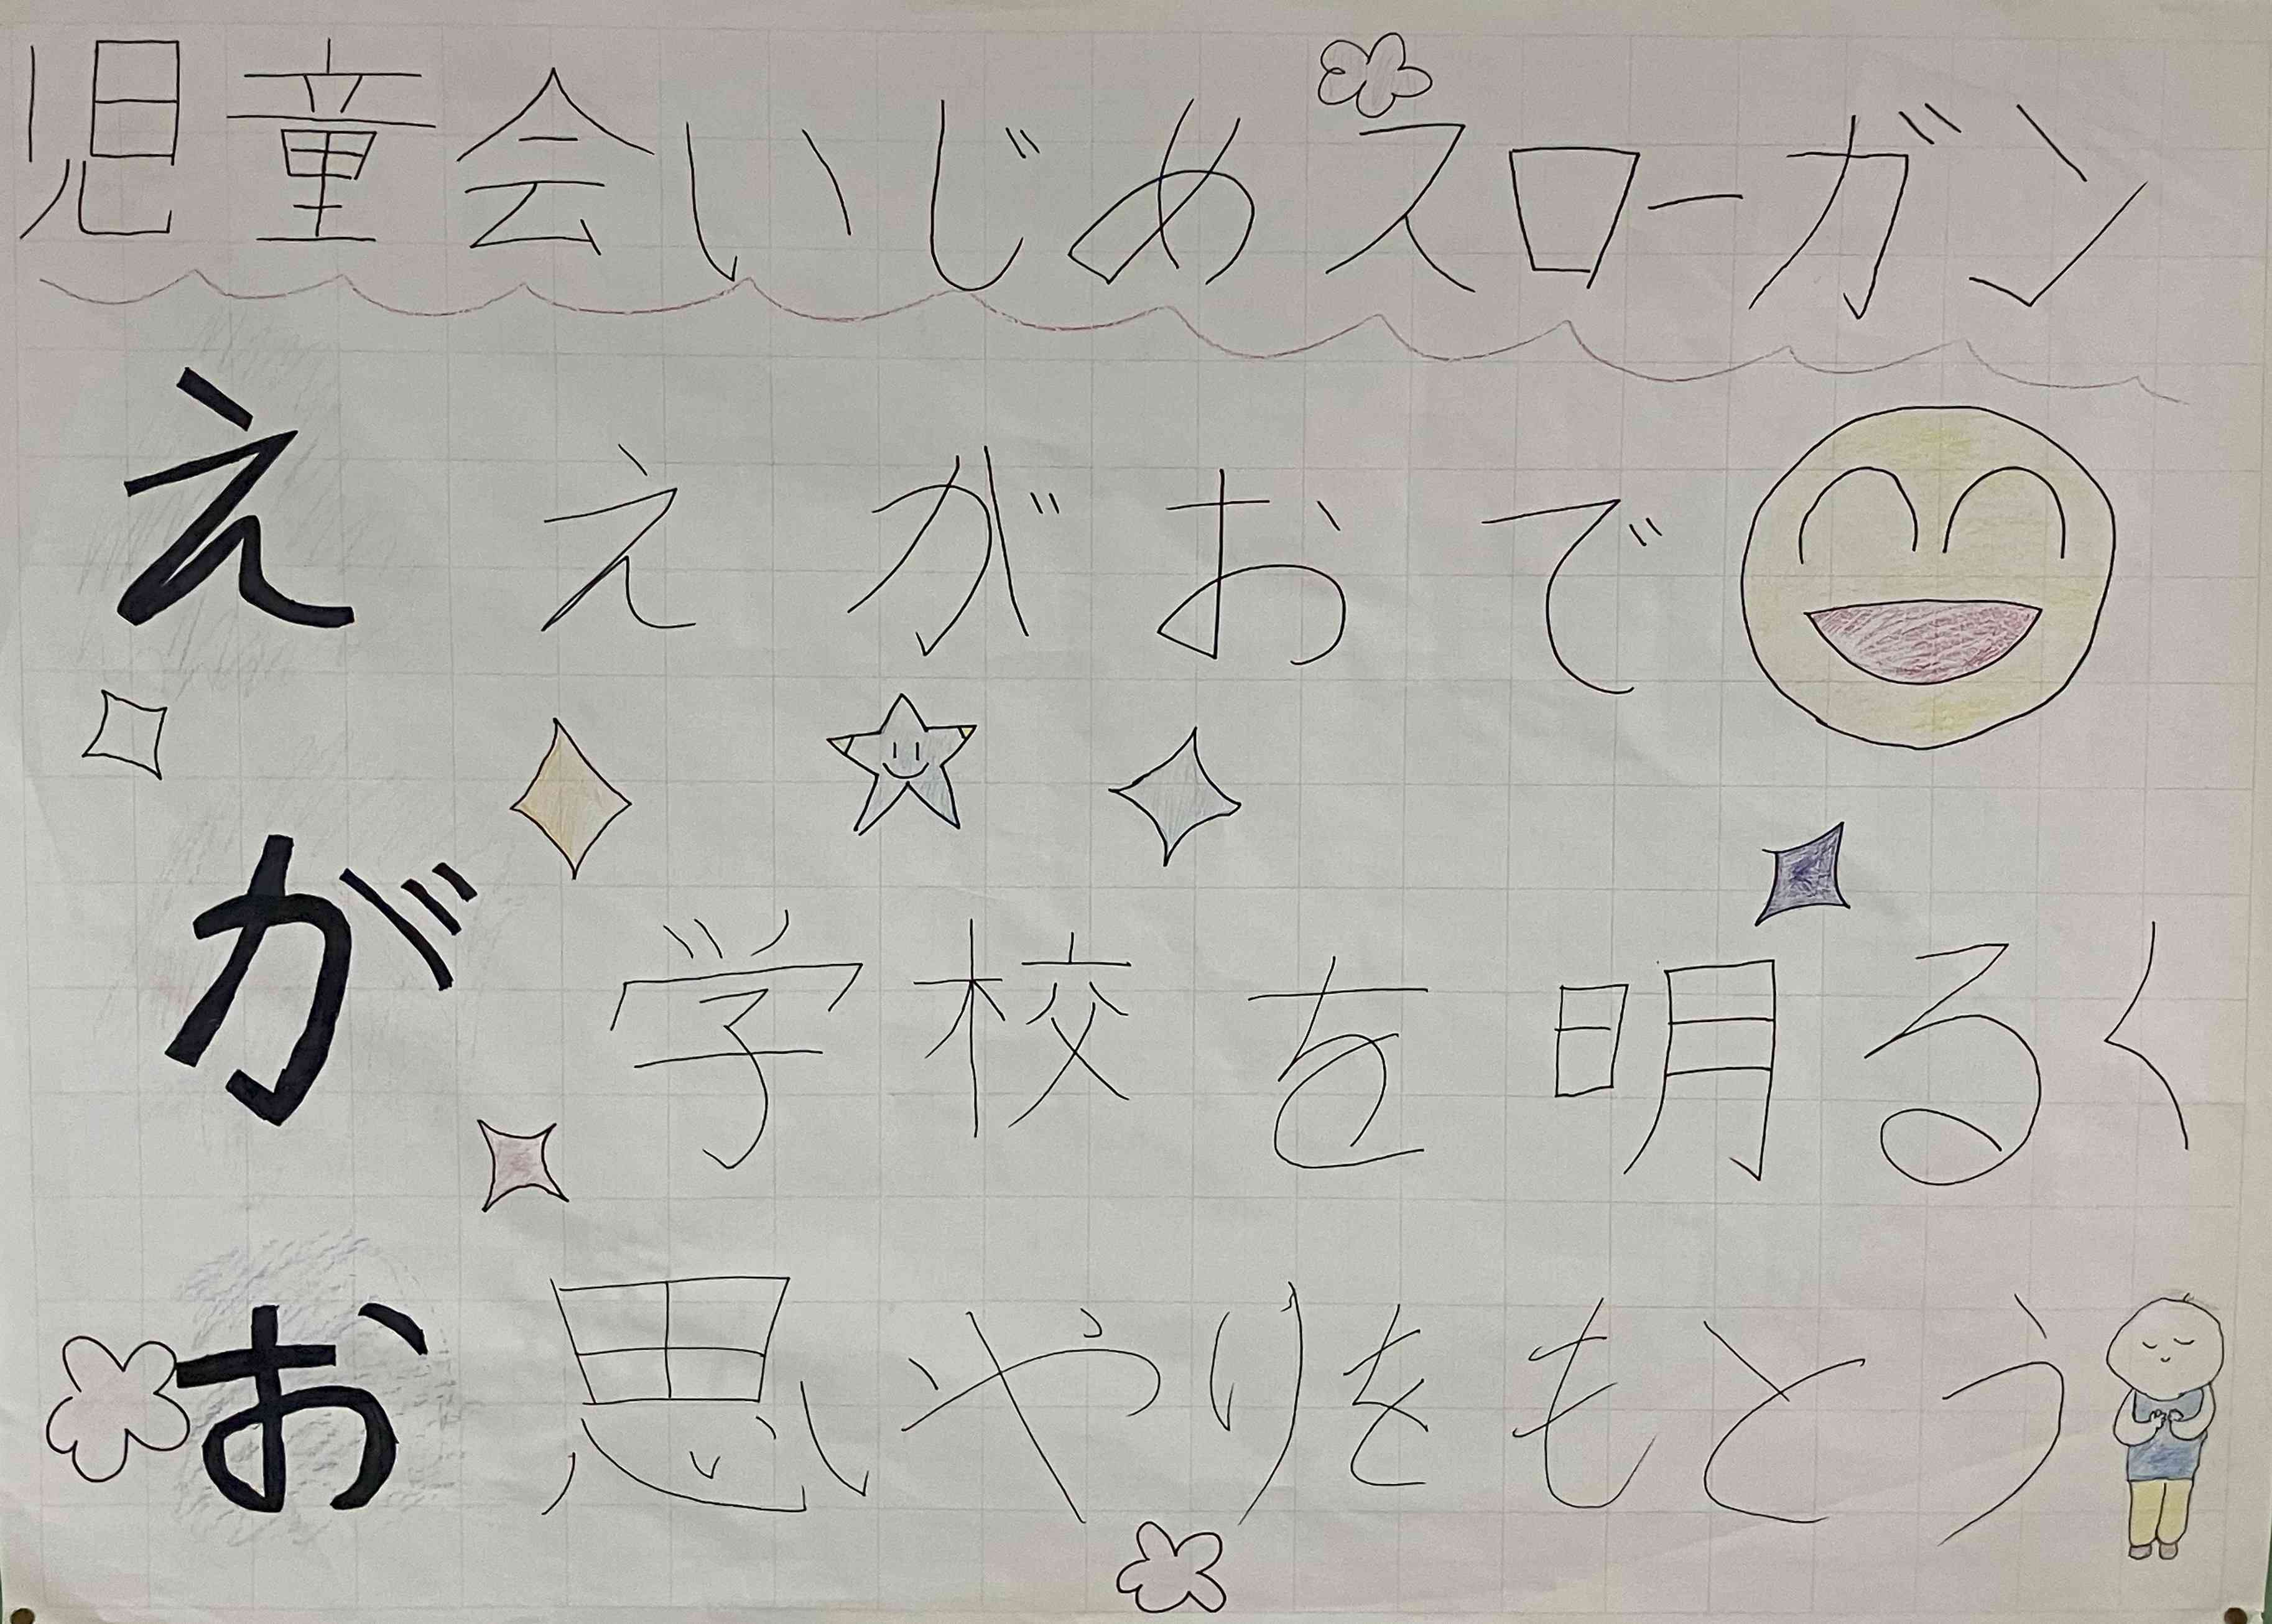 児童会いじめスローガン
え えがおで
が 学校を明るく
お 思いやりをもとう